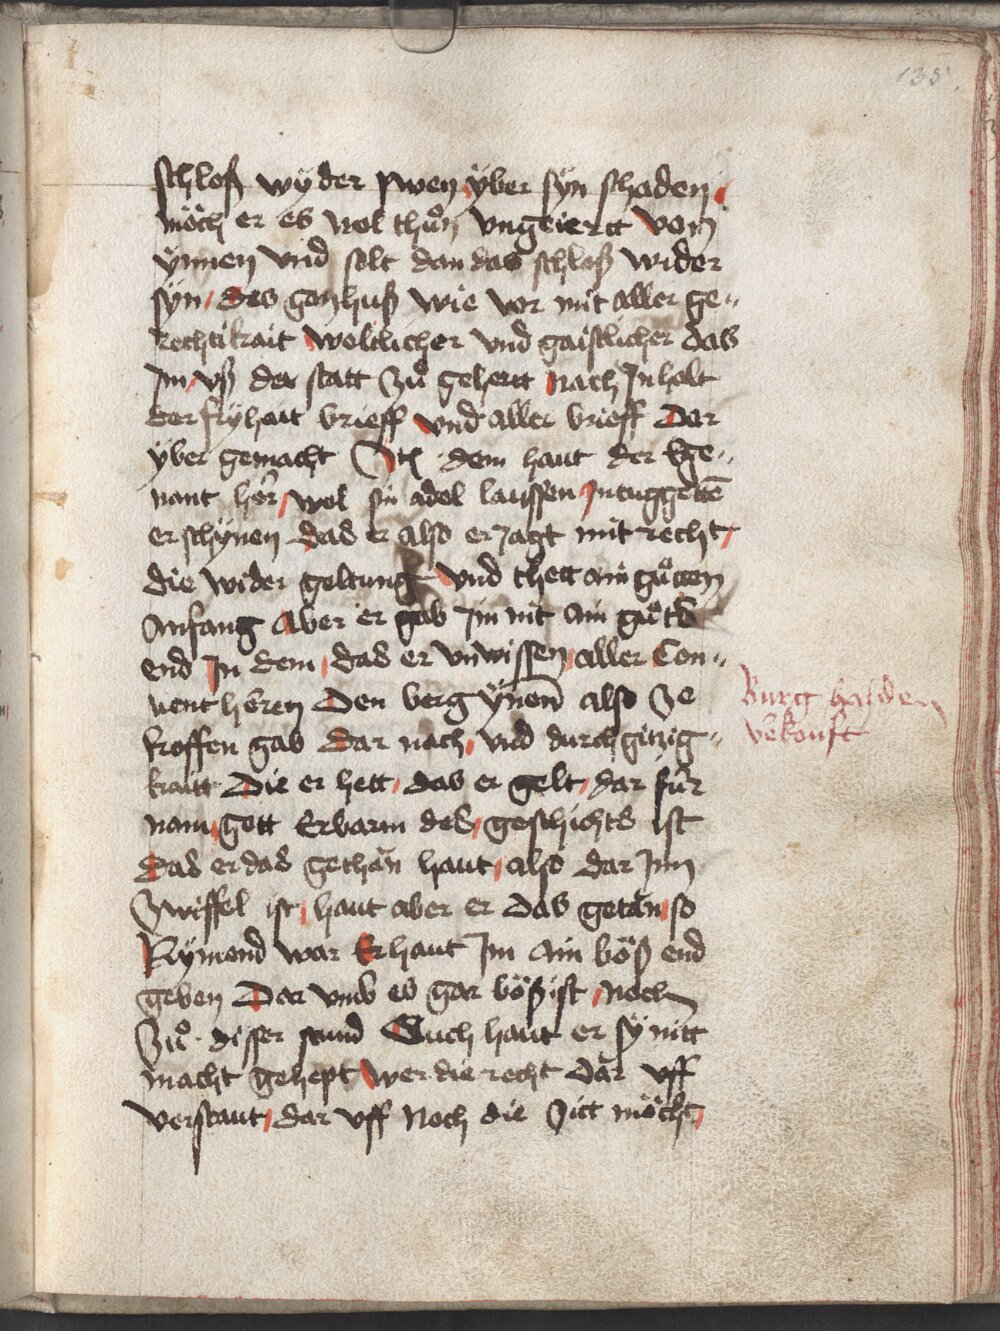 135
schloß wyder ÿber sÿn schaden
möch er es wol thůn vngeiertt vom
ÿnnen vnd solt dan das schloß wider
sÿn des gozhuß wie vor mit aller ge„
rechtikait weltlicher vnd gaistlicher das
Im vß der statt zů gehertt nach Inhalt
der frÿhait brieff vnd aller brieff dar
ÿber gemacht dem haut der
nant her wol sin adel laussen
erschÿnen das er also erzagt mit recht
die wider geltung vnd thett ain gůtten
Anfang Aber er gab Im nit ain gůts
end In dem das er vnwissen aller Con„
uent heren Den berg ÿnen also ze
koffen gab dar nach vnd durch gitzig„
kaitt Die er hett das er gelt dar für
nam gott Erbarm des geschichts ist
Das er das gethän haut also dar Inn
Zwiffel ist haut aber er das getän so
war Er haut Im ain böß end
geben Dar vmb es gar böß ist noch
Zů disser stund Ouch haut er sÿ nitt
macht gehept wer die recht dar vff
verstaut dar vff noch die möcht
Burg halden
verkouft